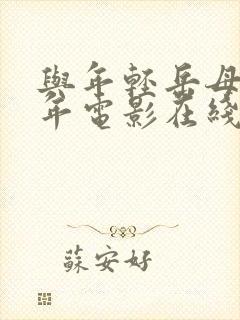 與年輕岳母
年電影在綫
蘇安好